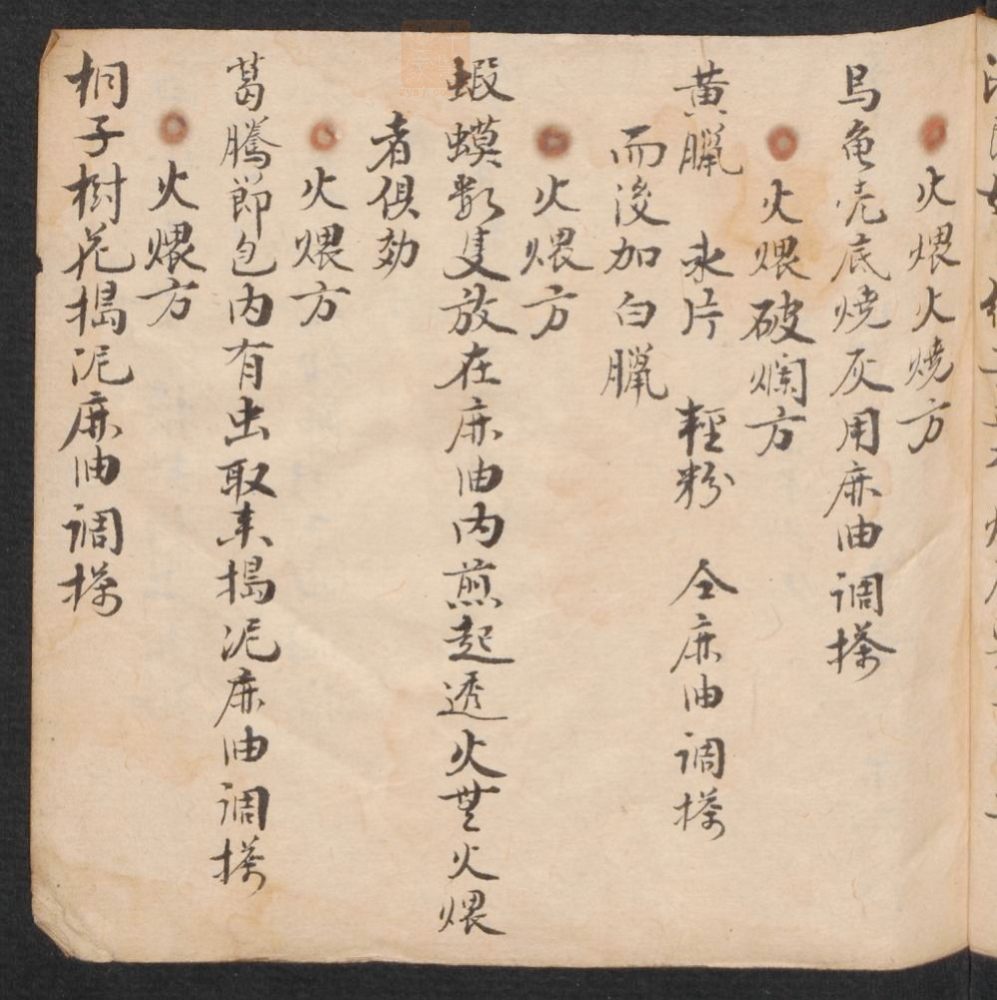 火煨火燒方
烏龟壳底燒灰用麻油调搽
火煨破爛方
黄臘 氷片 輕粉 仝麻油调搽
而後加白臘
火煨方
蝦蟆数隻放在麻油内煎起透火毒火煨
者俱効
火煨方
葛騰節包内有虫取来搗泥麻油调搽
火煨方
桐子樹花搗泥麻油调搽